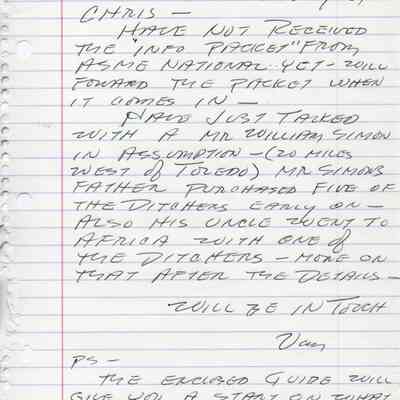 CHRIS —
HAVE NOT RECEIVED
THE "INFO PACKET" FROM
ASME NATIONAL YET - WILL
FOWARD THE PACKET WHEN
IT COMES IN —
HAVE JUST TALKED
WITH A MR WILLIAM SIMON
IN ASSUMPTION - (20 MILES
WEST of TOLEDO) MR SIMONS
FATHER PURCHASED FIVE OF
THE DITCHERS EARLY ON —
ALSO HIS UNCLE WENT TO
AFRICA WITH ONE of
THE DITCHERS - MORE ON
THAT AFTER THE DETAILS —
WILL BE IN TOUCH
Van
PS —
THE ENCLOSED GUIDE WILL
GIVE YOU A START ON WHAT